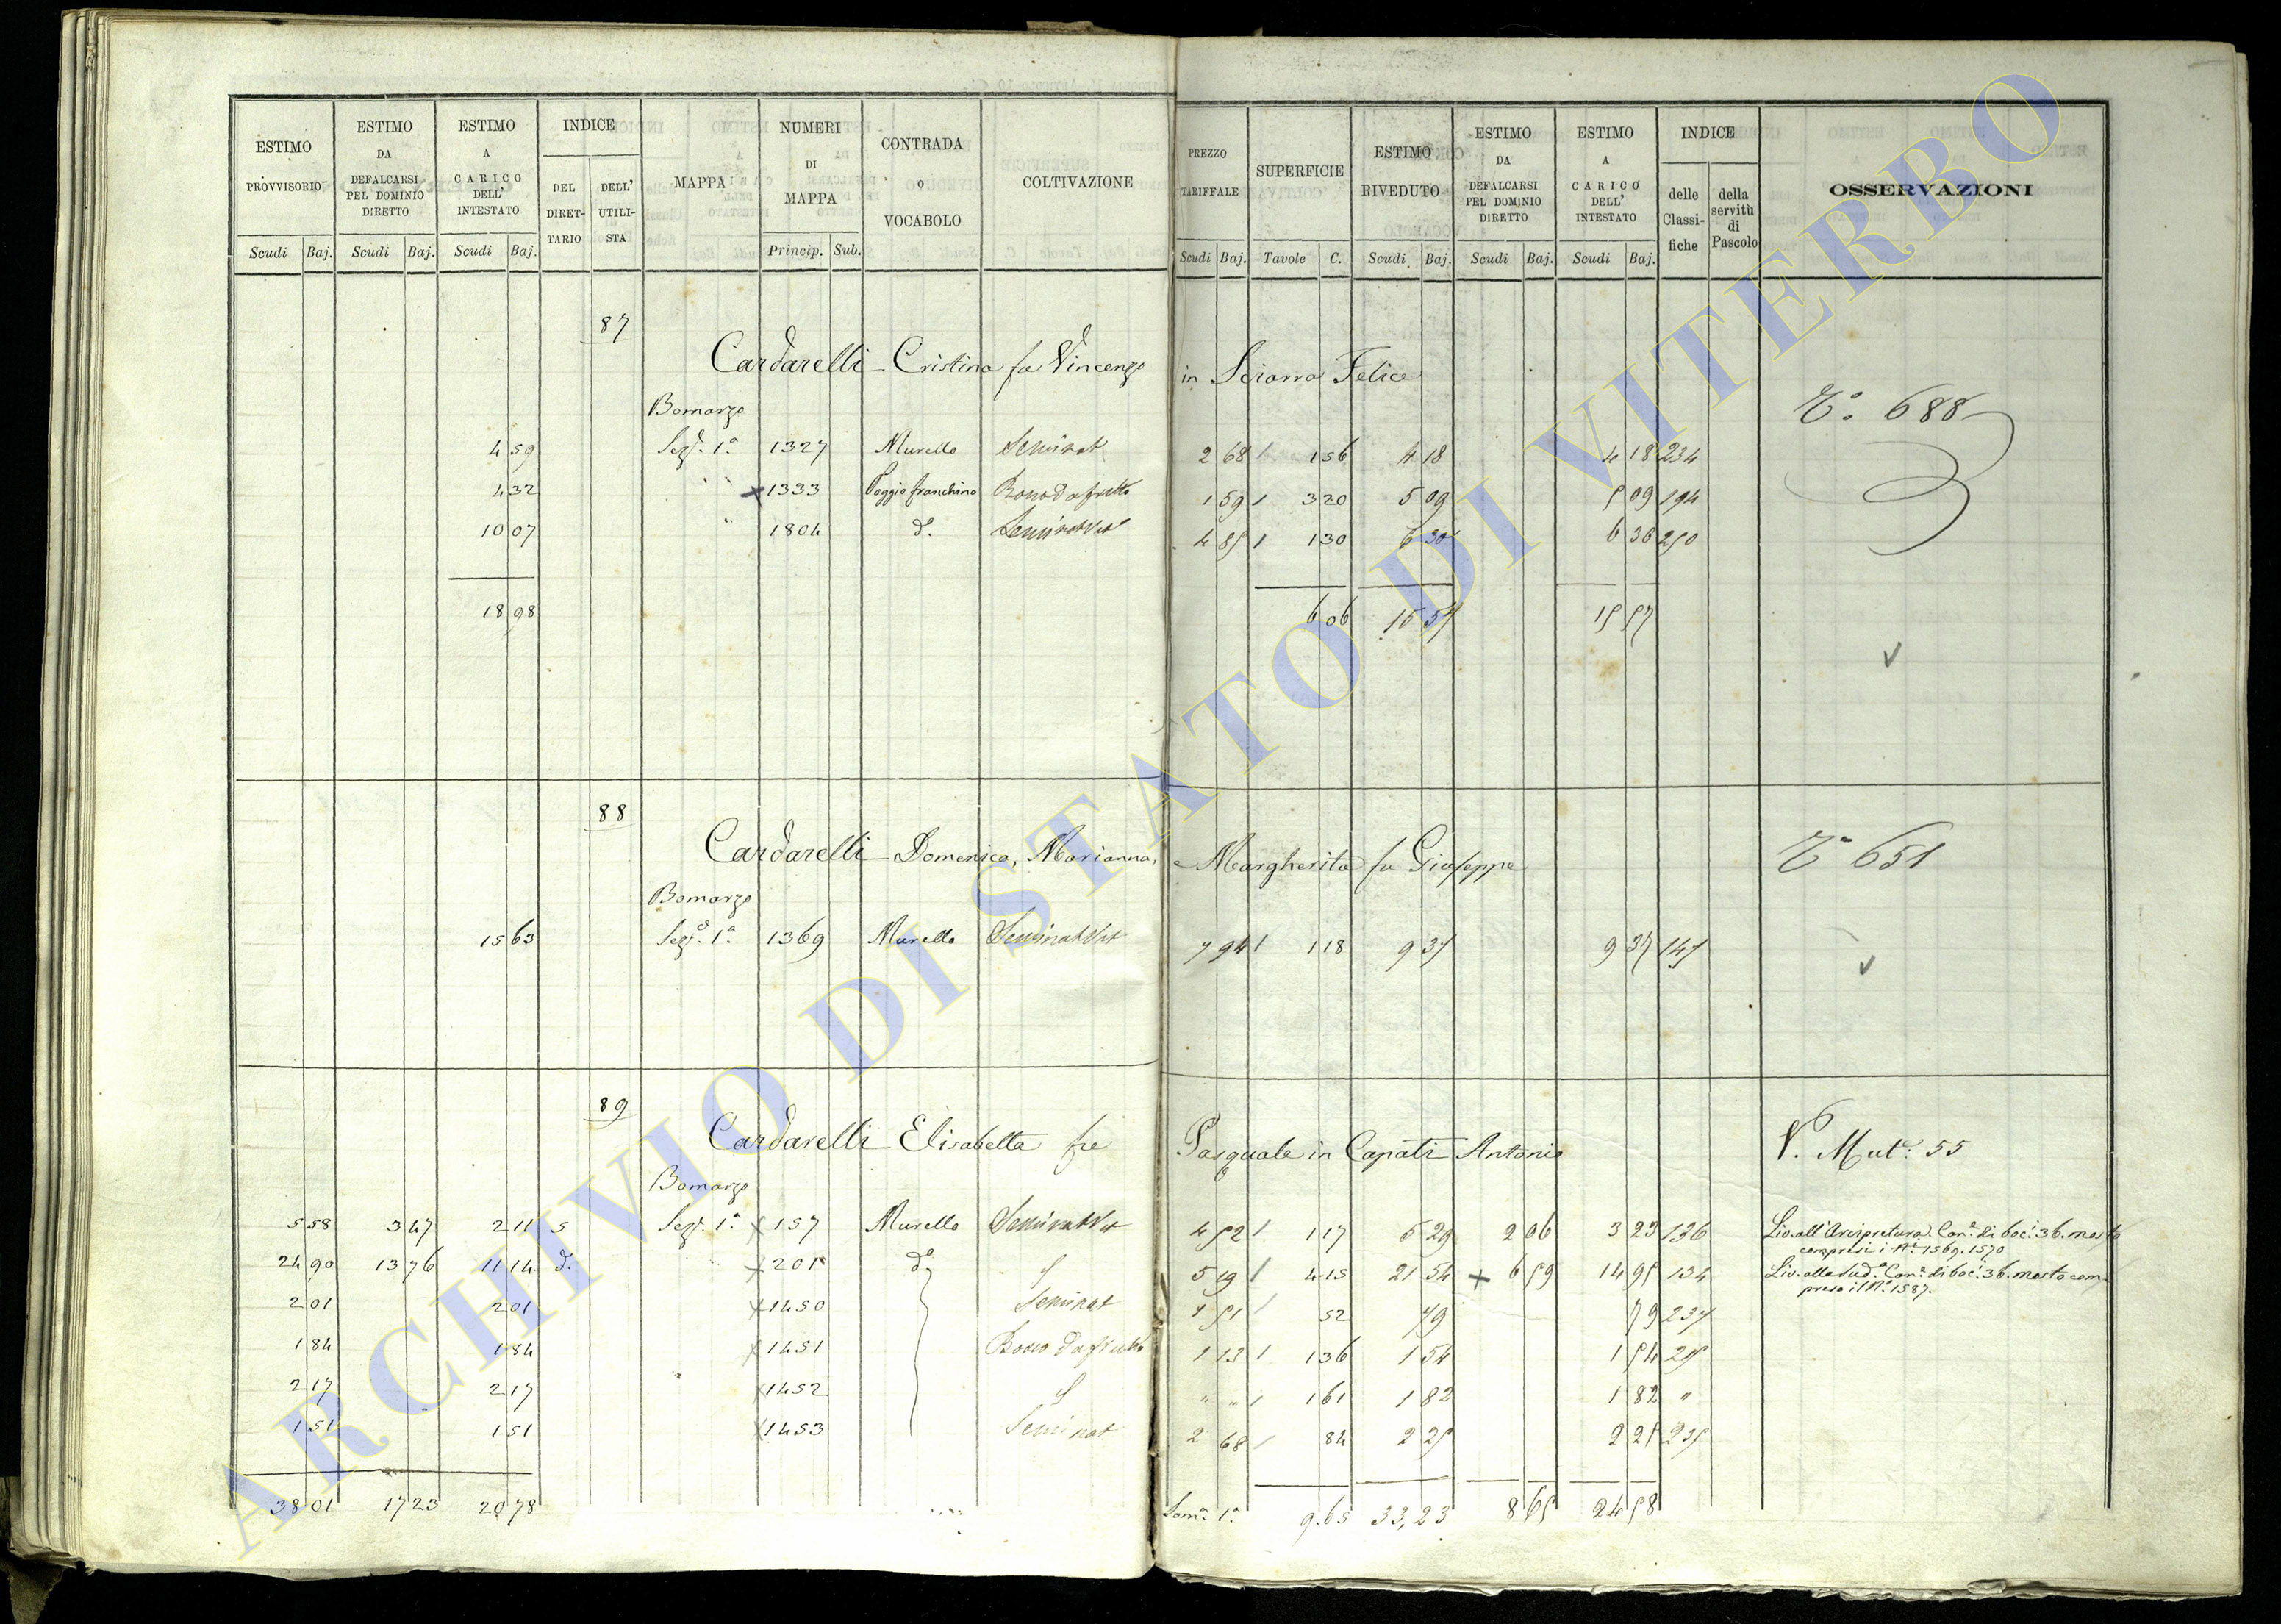 ESTIMO PROVVISORIO ESTIMO DA DEFALCARSI PEL DOMINIO DIRETTO ESTIMO A CARICO DELL' INTESTATO INDICE DEL DIRETTARIO DELL' UTILISTA MAPPA NUMERI DI MAPPA CONTRADA O VOCABOLO COLTIVAZIONE PREZZO TARIFFALE SUPERFICIE ESTIMO RIVEDUTO ESTIMO DA DEFALCARSI PEL DOMINIO DIRETTO ESTIMO A CARICO DELL' INTESTATO INDICE delle Classifiche della servitù di Pascolo OSSERVAZIONI
Scudi Baj. Scudi Baj. Scudi Baj. Princip. Sub. Scudi Baj. Tavole C. Scudi Baj. Scudi Baj. Scudi Baj.
87
Cardarelli Cristina fu Vincenzo in Sciarra Felice
Bomarzo 688
4 59 Sez. 1a 1327 Murello Seminat 2 68 1 56 4 18 4 18 234
4 32 " × 1333 Poggio franchino Bosco da frutto 1 59 3 20 5 09 5 09 194
10 07 " 1804 do. Seminat Vit 4 85 1 30 6 30 6 30 250
18 98 6 06 15 57 15 57
88
Cardarelli Domenica, Marianna, e Margherita fu Giuseppe 651
Bomarzo
15 63 Sez. 1a 1369 Murello Seminat Vit 7 94 1 18 9 37 9 37 147
89
Cardarelli Elisabetta fu Pasquale in Capati Antonio V. Mut. 55
Bomarzo
5 58 3 47 2 11 5 Sez. 1a × 157 Murello Seminat Vit 4 52 1 17 5 29 2 06 3 23 136 Liv. all'Arcipretura Can. di boc. 36. mosto compresi i Ni. 1569. 1570
24 90 13 76 11 14 d. × 201 do 5 19 4 15 21 54 × 6 59 14 95 134 Liv. alla sud. Can. di boc. 36. mosto compreso il No. 1587.
2 01 2 01 × 1450 Seminat 1 51 52 79 79 237
1 84 1 84 × 1451 Bosco da frutto 1 13 1 36 1 54 1 54 215
2 17 2 17 × 1452 " " 1 61 1 82 1 82 "
1 51 1 51 × 1453 Seminat 2 68 84 2 25 2 25 235
38 01 17 23 20 78 Som. 1a 9.65 33,23 8 65 24 58
ARCHIVIO DI STATO DI VITERBO